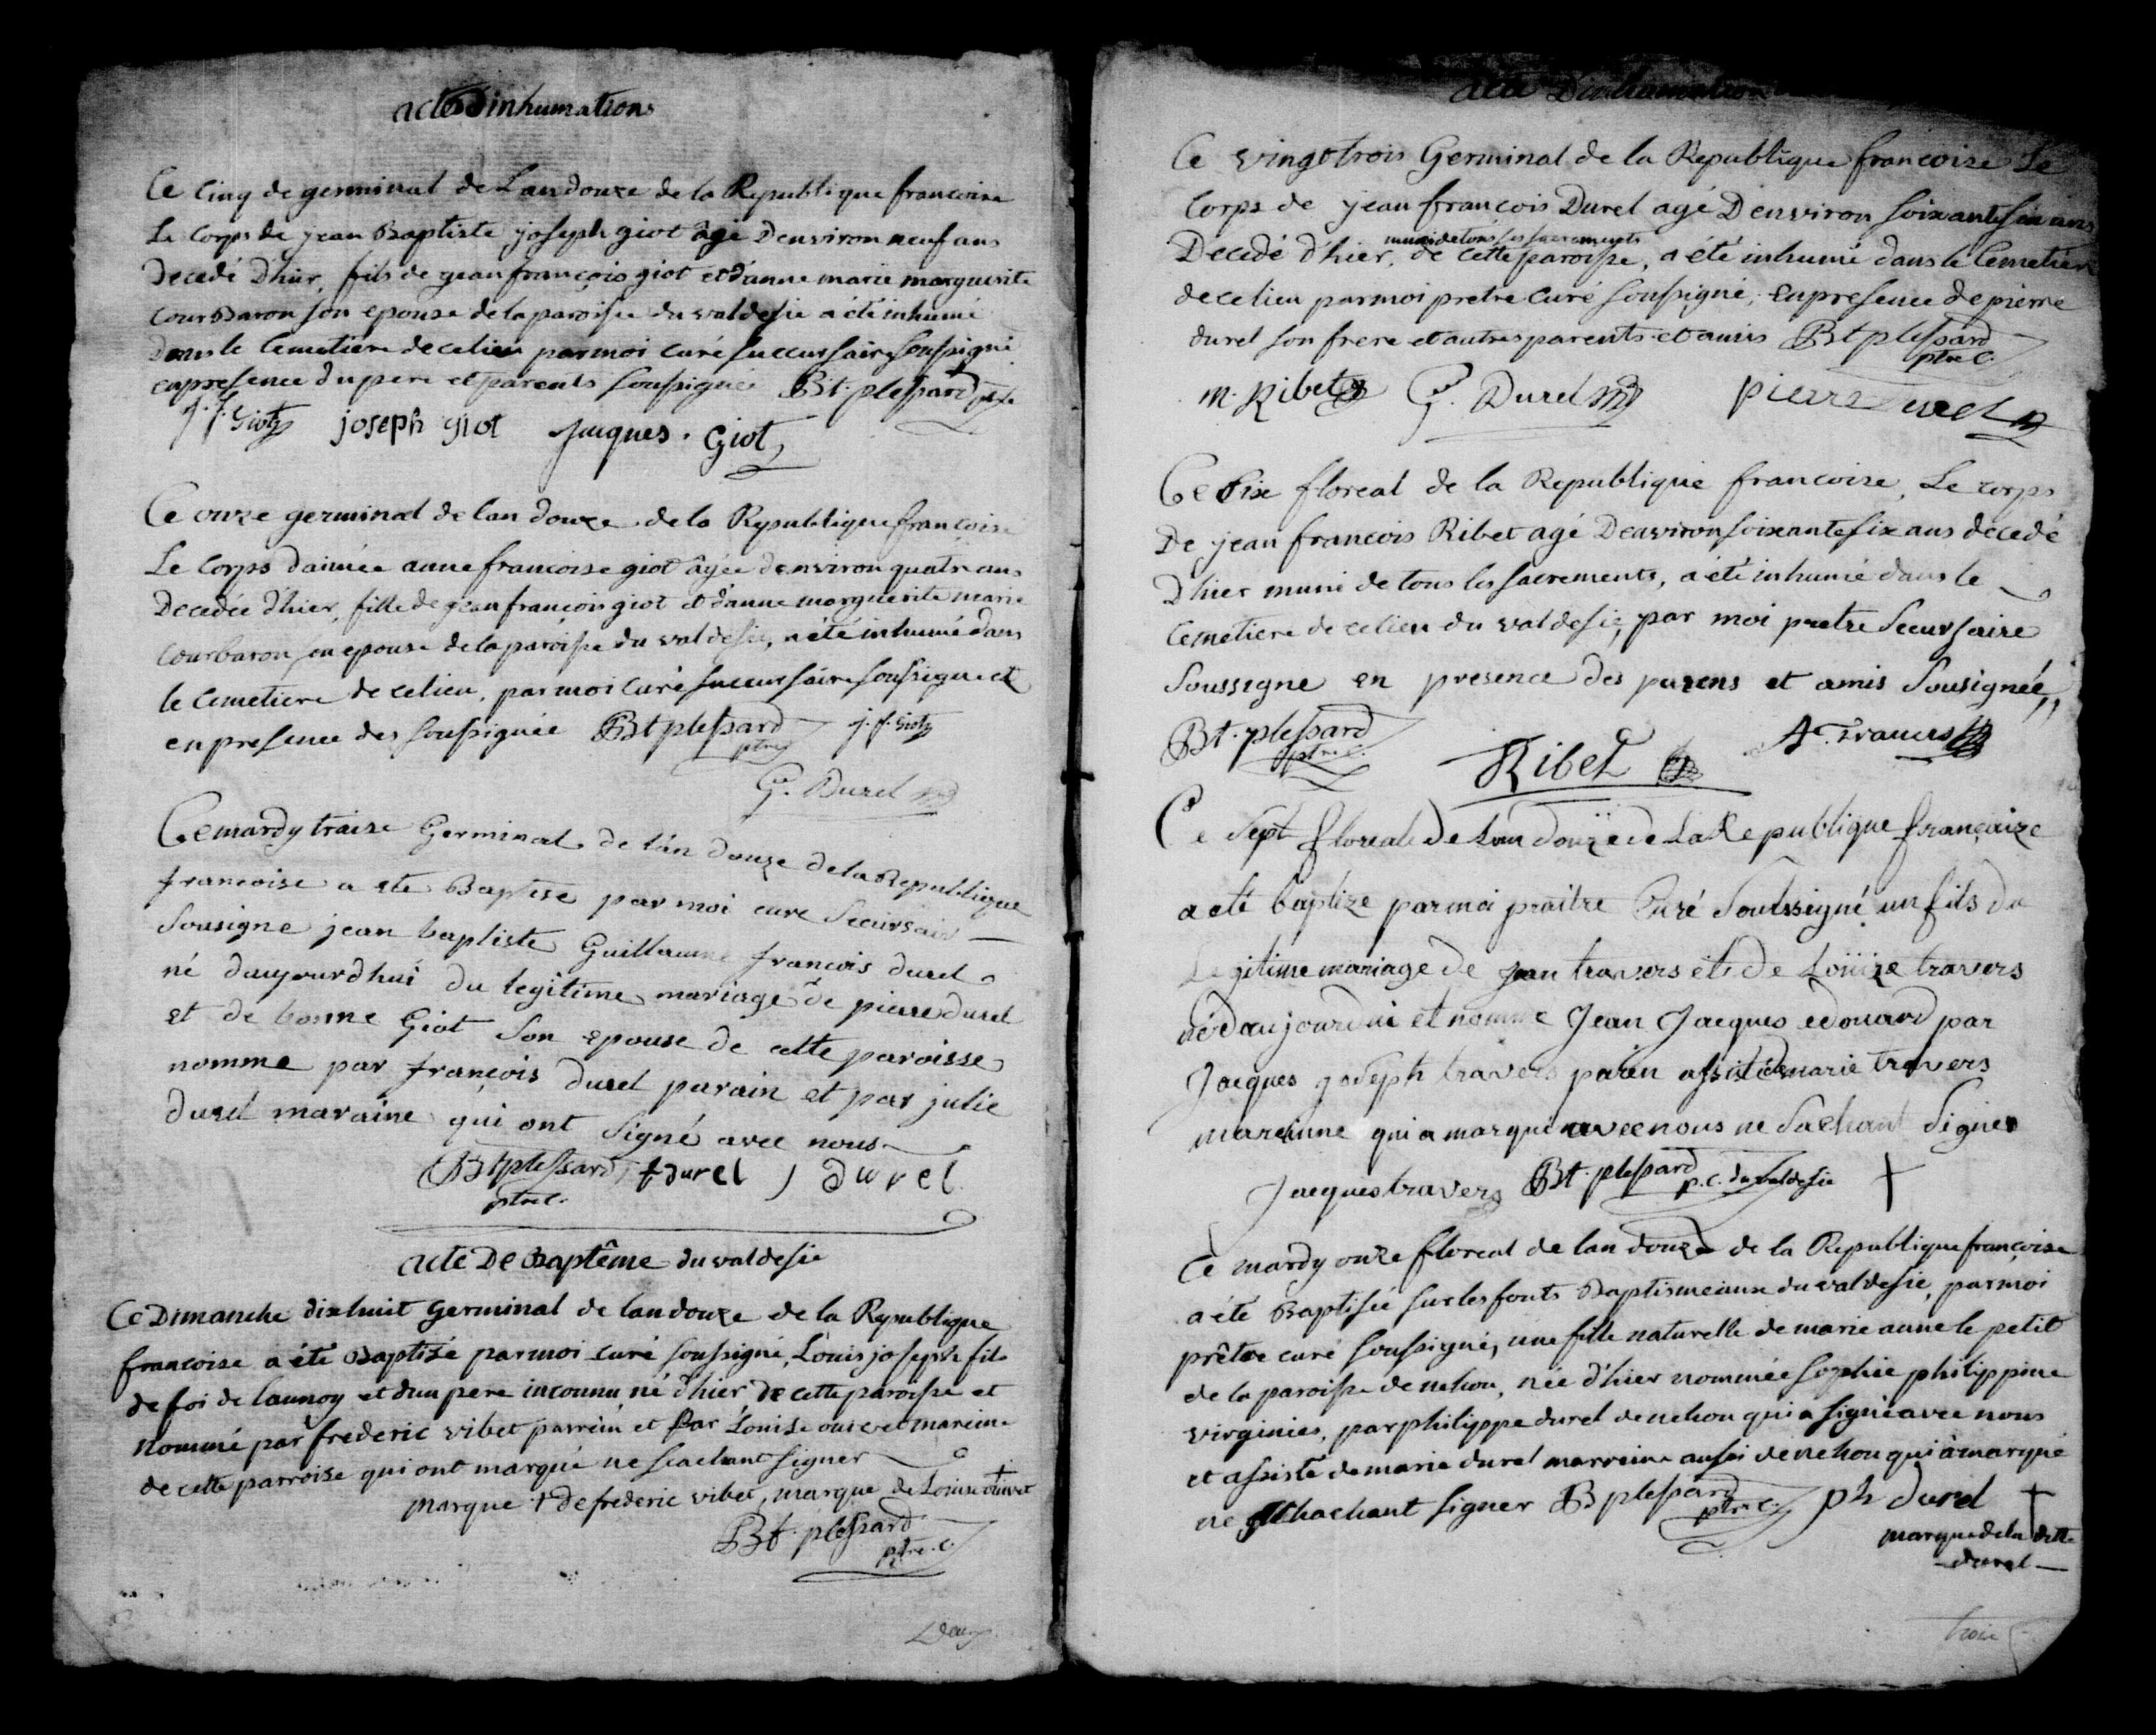 actes d'inhumations
Ce cinq de germinal de L'an douze de la Republique francoise
Le corps de jean Baptiste joseph giot âgé d'environ neuf ans
Decedé d'hier, fils de jean françois giot et d'anne marie marguerite
courbaron son epouse de la paroisse du valdesie a été inhumé
Dans le Cemetiere de ce lieu par moi curé succursaire soussigné
en presence du pere et parents soussignés Bt. plessard ptre
j. f. Giot joseph giot Jacques. Giot
Ce onze germinal de lan douze de la Republique françoise
Le Corps d'aimée anne francoise giot âgée d'environ quatre ans
Decedée d'hier, fille de jean françois giot et d'anne marguerite marie
courbaron son epouse de la paroisse du valdesie, a été inhumé dans
le Cemetiere de ce lieu, par moi curé succursaire soussigné et
en presence des soussignée Bt plessard ptre j. f. Giot
G. Durel
Ce mardy traise Germinal de l'an douze de la Republique
francoise a ete Baptise par moi cure Secursair
Sousigne jean baptiste Guillaume francois durel
né daujourdhui du legitime mariage de pierre durel
et de bonne Giot Son epouse de cette paroisse
nomme par françois durel parain et par julie
durel maraine qui ont signé avec nous
Bt plessard f durel J durel
ptre c.
acte De Baptême du valdesie
Ce Dimanche dixhuit Germinal de lan douze de la Republique
francoise a été Baptizé par moi curé soussigné, Louis joseph fils
de foi de launoy et d'un pere inconnu né d'hier de cette paroisse et
nommé par frederic vibet parrein et par Louise ourvet mareine
de cette parroise qui ont marqué ne scachant signer
marque + de frederic vibet, marque de Louise +
Bt. plessard
ptre. c.
Deux
acte D'inhumation
Ce vingt trois Germinal de la Republique francoise Le
Corps de jean francois Durel agé D'environ soixante six ans
muni de tous les sacrements
Decedé d'hier, de cette paroisse, a été inhumé dans le Cemetiere
de ce lieu par moi pretre curé soussigné, en presence de pierre
durel son frere et autres parents et amis Bt plessard
ptre c.
m. Ribet G. Durel pierre Durel
Ce Six floreal de la Republique francoise, Le corps
De jean francois Ribet agé D'environ soixante six ans decedé
D'hier muni de tous les sacrements, a été inhumé dans le
Cemetiere de ce lieu du valdesie, par moi pretre Secursaire
Soussigne en presence des parens et amis Sousignée,,
Bt. plessard A. Travers
ptre c. Ribet
Ce Sept floreal de Lan douze de La Republique françaize
a eté baptize par moi praitre Curé Soutssigné un fils du
Legitime mariage de jean travers et de Loüize travers
né daujourdui et nomme Jean Jacques edouard par
Jacques joseph travers parin assisté de marie travers
mareinne qui a marqué avec nous ne Sachant Signer
Jacques travers Bt. plessard p. c. du valdesie +
Ce mardy onze floreal de lan douze de la Republique françoise
a été Baptisée sur les fonts Baptismeaux du valdesie, par moi
prêtre curé soussigné, une fille naturelle de marie anne le petit
de la paroisse de nehou, née d'hier nommée sophie philippine
virginies, par philippe durel de nehou qui a signé avec nous
et assisté de marie durel marreine aussi de nehou qui à marqué
ne sachant signer B plessard ptre c. ph durel +
marque de la ditte
durel
trois